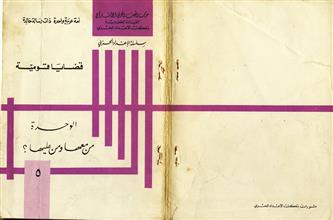 أمة عربية واحدة ذات رسالة خالدة
سلسلة الإعداد الحزبي
قضايا قومية
الوحدة
من معها ومن عليها؟
٥
منشورات مكتب الاعداد الحزبي